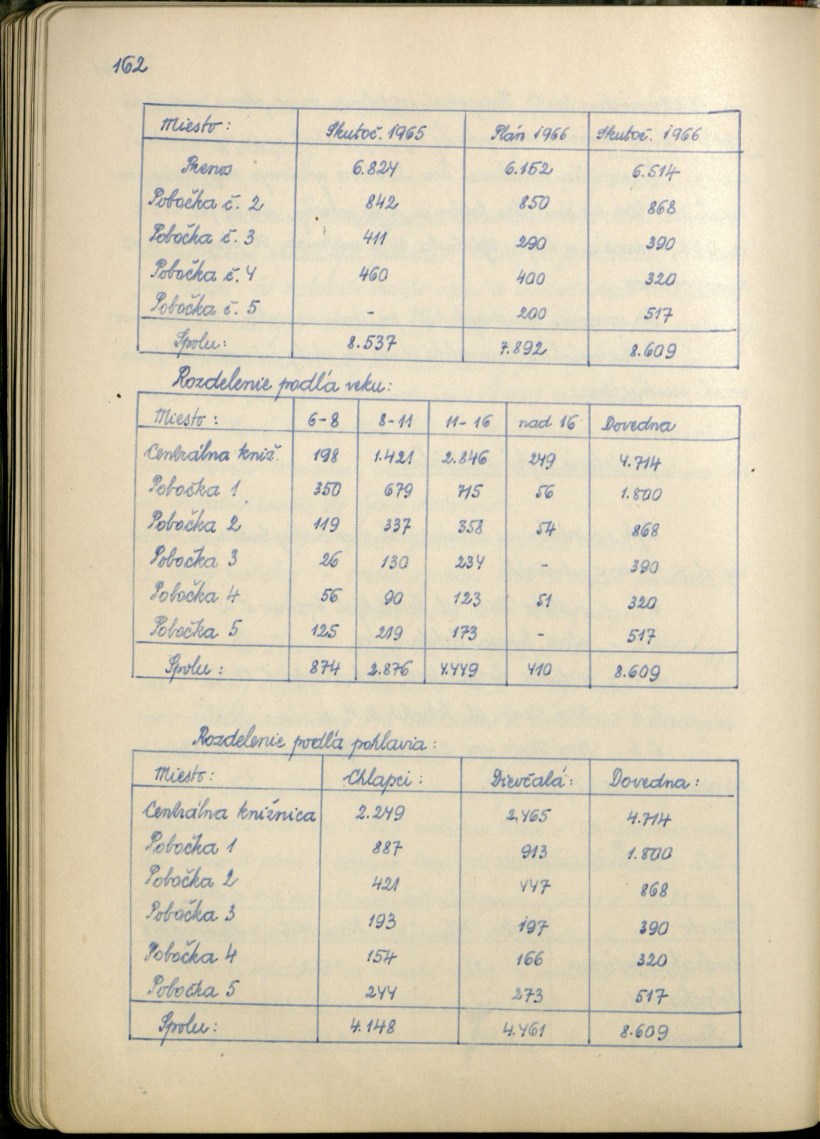 162
Miesto: Skutoč. 1965 Plán 1966 Skutoč. 1966
Prenos 6.824 6.152 6.514
Pobočka č. 2 842 850 868
Pobočka č. 3 411 290 390
Pobočka č. 4 460 400 320
Pobočka č. 5 - 200 517
Spolu: 8.537 7.892 8.609
Rozdelenie podľa veku:
Miesto: 6-8 8-11 11-16 nad 16 Dovedna
Centrálna kniž. 198 1.421 2.846 249 4.714
Pobočka 1 350 679 715 56 1.800
Pobočka 2 119 337 358 54 868
Pobočka 3 26 130 234 - 390
Pobočka 4 56 90 123 51 320
Pobočka 5 125 219 173 - 517
Spolu: 874 2.876 4.449 410 8.609
Rozdelenie podľa pohlavia:
Miesto: Chlapci: Dievčatá: Dovedna:
Centrálna knižnica 2.249 2.465 4.714
Pobočka 1 887 913 1.800
Pobočka 2 421 447 868
Pobočka 3 193 197 390
Pobočka 4 154 166 320
Pobočka 5 244 273 517
Spolu: 4.148 4.461 8.609